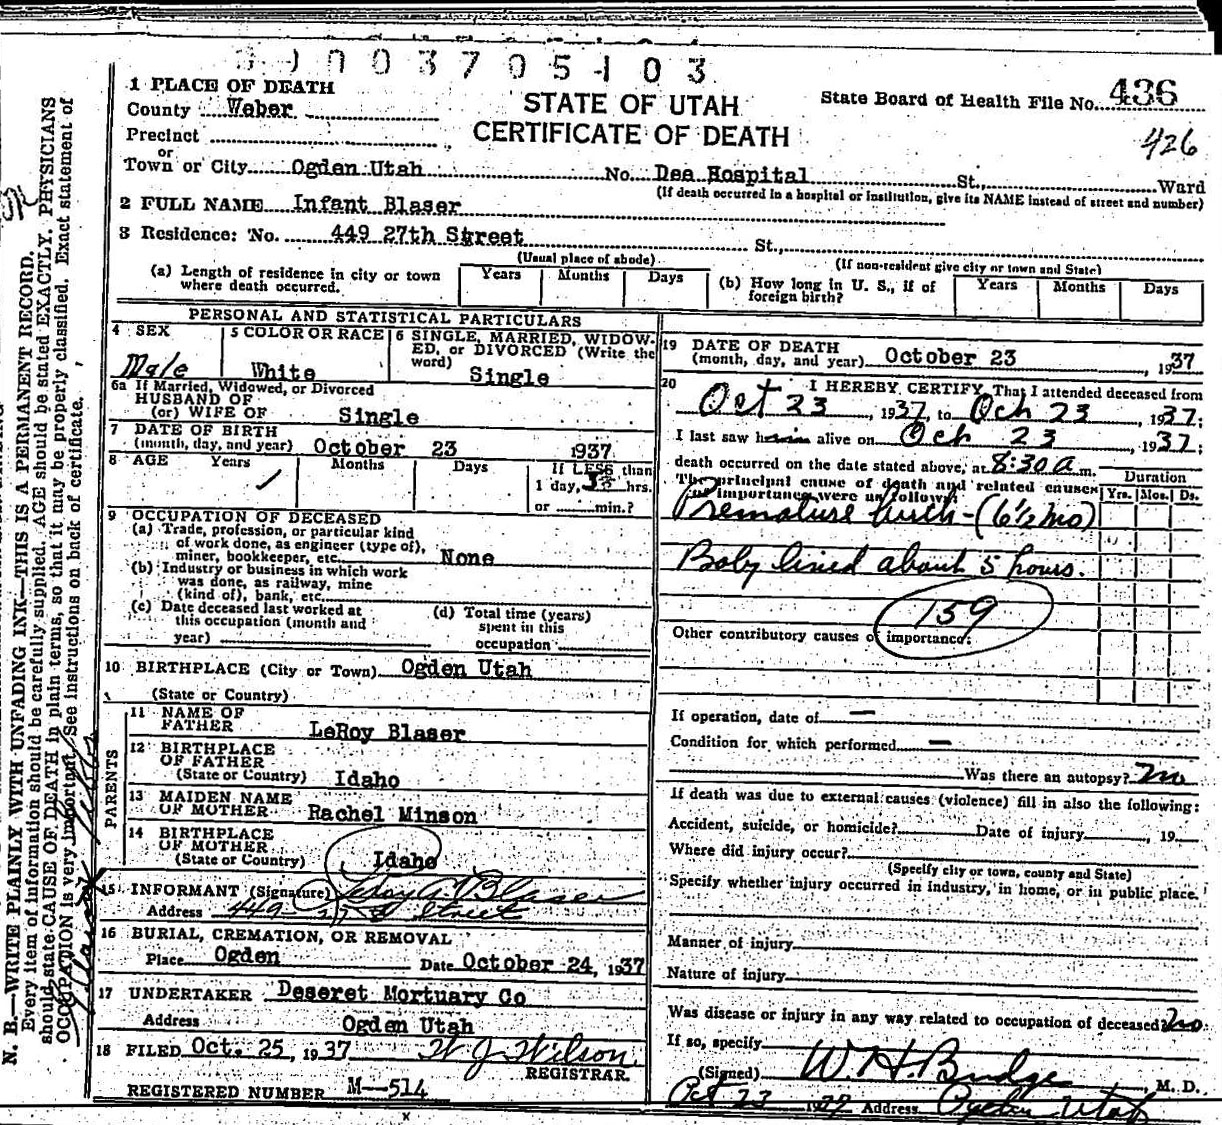 3 7 0 5 1 0 3
1 PLACE OF DEATH
STATE OF UTAH
CERTIFICATE OF DEATH
State Board of Health File No. 436
426
County Weber
Precinct
or
Town or City Ogden Utah No. Dee Hospital St., Ward
(If death occurred in a hospital or institution, give its NAME instead of street and number)
2 FULL NAME Infant Blaser
3 Residence: No. 449 27th Street St.,
(Usual place of abode) (If non-resident give city or town and State)
(a) Length of residence in city or town where death occurred. Years Months Days (b) How long in U. S., if of foreign birth? Years Months Days
PERSONAL AND STATISTICAL PARTICULARS
4 SEX
Male
5 COLOR OR RACE
White
6 SINGLE, MARRIED, WIDOW-
ED, or DIVORCED (Write the
word) Single
6a If Married, Widowed, or Divorced
HUSBAND OF
(or) WIFE OF Single
7 DATE OF BIRTH
(month, day, and year) October 23 1937
8 AGE Years Months Days If LESS than
1 day, hrs.
or min.?
9 OCCUPATION OF DECEASED
(a) Trade, profession, or particular kind
of work done, as engineer (type of),
miner, bookkeeper, etc. None
(b) Industry or business in which work
was done, as railway, mine
(kind of), bank, etc.
(c) Date deceased last worked at
this occupation (month and
year)
(d) Total time (years)
spent in this
occupation
10 BIRTHPLACE (City or Town) Ogden Utah
(State or Country)
PARENTS
11 NAME OF
FATHER LeRoy Blaser
12 BIRTHPLACE
OF FATHER
(State or Country) Idaho
13 MAIDEN NAME
OF MOTHER Rachel Minson
14 BIRTHPLACE
OF MOTHER
(State or Country) Idaho
15 INFORMANT (Signature) LeRoy A Blaser
Address 449-27th Street
16 BURIAL, CREMATION, OR REMOVAL
Place Ogden Date October 24, 1937
17 UNDERTAKER Deseret Mortuary Co
Address Ogden Utah
18 FILED Oct. 25, 1937 W J Wilson
REGISTRAR.
REGISTERED NUMBER M—514
19 DATE OF DEATH
(month, day, and year) October 23, 1937
20 I HEREBY CERTIFY, That I attended deceased from
Oct 23, 1937, to Oct 23, 1937;
I last saw him alive on Oct 23, 1937;
death occurred on the date stated above, at 8:30 a m.
The principal cause of death and related causes
of importance were as follows:
Duration
Yrs. Mos. Ds.
Premature birth-(6½ mo)
Baby lived about 5 hours.
159
Other contributory causes of importance:
If operation, date of —
Condition for which performed —
Was there an autopsy? No
If death was due to external causes (violence) fill in also the following:
Accident, suicide, or homicide? Date of injury , 19
Where did injury occur?
(Specify city or town, county and State)
Specify whether injury occurred in industry, in home, or in public place.
Manner of injury
Nature of injury
Was disease or injury in any way related to occupation of deceased? No
If so, specify
(Signed) W. H. Budge, M. D.
Oct 23 Address Ogden Utah
N. B.—WRITE PLAINLY WITH UNFADING INK—THIS IS A PERMANENT RECORD.
Every item of information should be carefully supplied. AGE should be stated EXACTLY. PHYSICIANS
should state CAUSE OF DEATH in plain terms, so that it may be properly classified. Exact statement of
OCCUPATION is very important. See instructions on back of certificate.